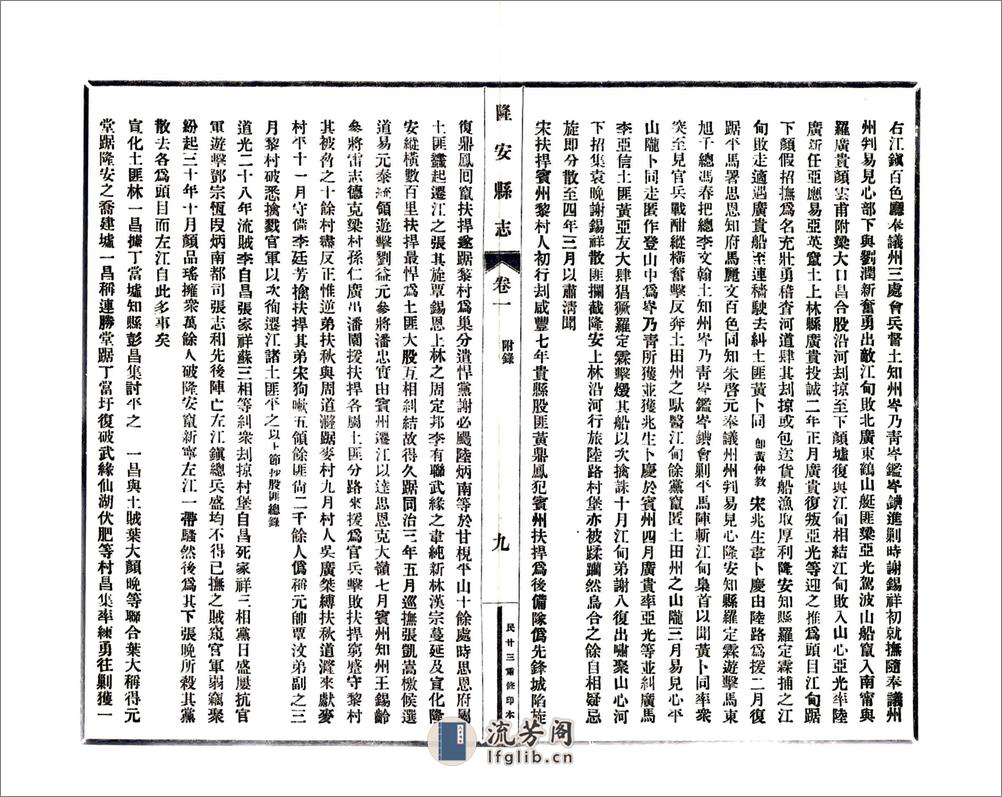 右江鎮百色廳奉議州三處會兵督土知州岑乃靑岑鑑岑鐀進剿時謝錫祥初就撫隨奉議州
州判易見心部下與劉潤新奮勇出敵江甸敗北廣東鶴山艇匪梁亞光駕波山船竄入南甯與
羅廣貴顏雲甫附梁大口昌合股沿河刦掠至下顏墟復與江甸相結江甸敗入山心亞光率陸
廣新任亞應易亞英竄上上林縣廣貴投誠二年正月廣貴復叛亞光等迎之推爲頭目江甸踞
下顏假招撫爲名充壯勇稽查河道肆其刦掠或包送貨船漁取厚利隆安知縣羅定霖捕之江
甸敗走適遇廣貴船至連檣駛去糾土匪黃卜同 卽黃仲教 宋兆生韋卜慶由陸路爲援二月復
踞平馬署思恩知府馬麗文百色同知朱啓元奉議州州判易見心隆安知縣羅定霖遊擊馬東
旭千總馮春把總李文翰土知州岑乃靑岑鑑岑鐀會剿平馬陣斬江甸梟首以聞黃卜同率衆
突至見官兵戰酣縱橫奮擊反奔土田州之馱醫江甸餘黨竄匿土田州之山隴三月易見心平
山隴卜同走匿作登山中爲岑乃靑所獲並獲兆生卜慶於賓州四月廣貴率亞光等並糾廣馬
李亞信土匪黃亞友大肆猖獗羅定霖擊燬其船以次擒誅十月江甸弟謝八復出嘯聚山心河
下招集袁晚謝錫祥散匪攔截隆安上林沿河行旅陸路村堡亦被蹂躪然烏合之餘自相疑忌
旋即分散至四年三月以肅淸聞
宋扶捍賓州黎村人初行刦咸豐七年貴縣股匪黃鼎鳳犯賓州扶捍爲後備隊僞先鋒城陷旋
隆安縣志
卷一
附錄
九
民廿三重修印本
復鼎鳳回竄扶捍遂踞黎村爲巢分遺悍黨謝必颺陸炳南等於甘梘平山十餘處時思恩府屬
土匪蠭起遷江之張其旋覃錫恩上林之周定邦李有聯武緣之韋純新林漢宗蔓延及宣化隆
安縱橫數百里扶捍最悍爲土匪大股互相糾結故得久踞同治三年五月巡撫張凱嵩檄候選
道易元泰統領遊擊劉益元參將潘忠官由賓州遷江以達思恩克大嶺七月賓州知州王錫齡
參將雷志德克梁村孫仁廣出潘闌援扶捍各屬土匪分路來援爲官兵擊敗扶捍窮蹙守黎村
其被脅之十餘村盡反正惟逆弟扶秋與周道瀊踞麥村九月村人吳廣桀縛扶秋道瀊來獻麥
村平十一月守備李廷芳擒扶捍其弟宋狗嗽五領餘匪尙二千餘人僞稱元帥覃汶弟副之三
月黎村破悉擒戮官軍以次徇遷江諸土匪平之 以上節抄股匪總錄
道光二十八年流賊李自昌張家祥蘇三相等糾衆刦掠村堡自昌死家祥三相黨日盛屢抗官
軍遊擊鄧宗恆段炳南都司張志和先後陣亡左江鎮總兵盛均不得已撫之賊窺官軍弱竊聚
紛起三十年十月顏品瑤擁衆萬餘人破隆安竄新寧左江一帶騷然後爲其下張晚所殺其黨
散去各爲頭目而左江自此多事矣
宣化土匪林一昌據丁當墟知縣彭昌集討平之 一昌與土賊葉大顏晚等聯合葉大稱得元
堂踞隆安之喬建墟一昌稱連勝堂踞丁當圩復破武緣仙湖伏肥等村昌集率練勇往剿獲一
流芳阁
lfglib.cn